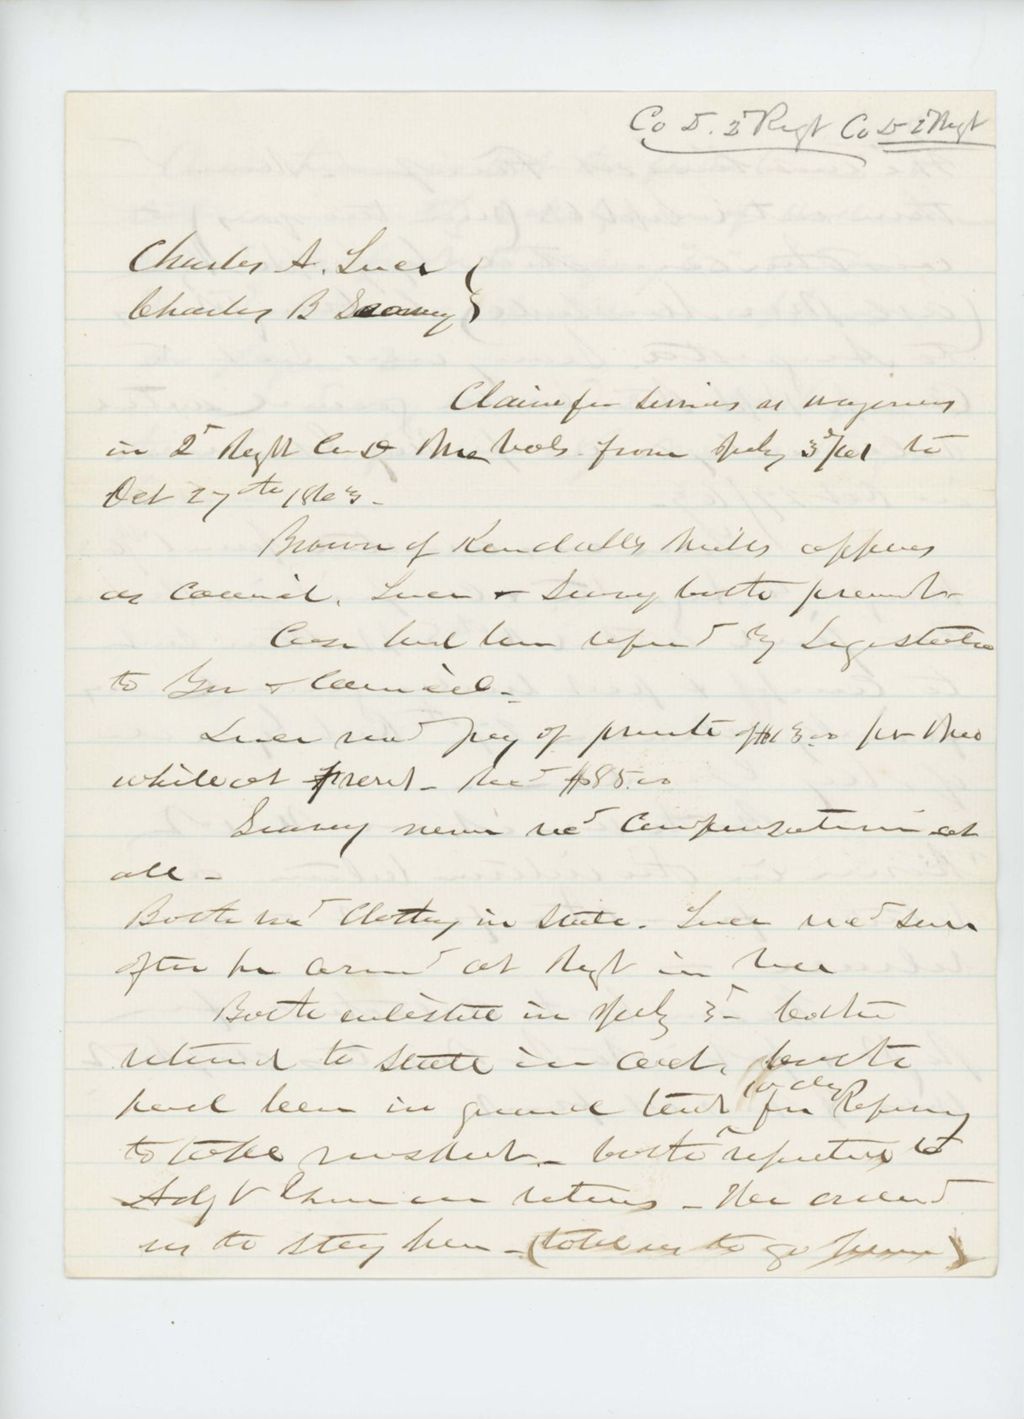 Co D. 2d Regt Co D 2d Regt
Charles A.
Charles B
Claim for services as wagoners
in 2d Regt Co D Me Vols from July 3d /61 to
Oct 27th 1863 -
Brown of Kendalls Mills appears
as Council. & both present
Case had been referred by Legislature
to Gov & Council -
recd pay of private $13.00 per Mo
while at - Recd $85.00
never recd compensation at
all -
Both recd Clothing in State.
after he at Regt in
Both enlisted in July 3d - both
returned to State in Oct, both
had been in guard tent for Refusing
to take musket - both reported to
Adjt on return - He ordered
us to stay here - (told us to go home)